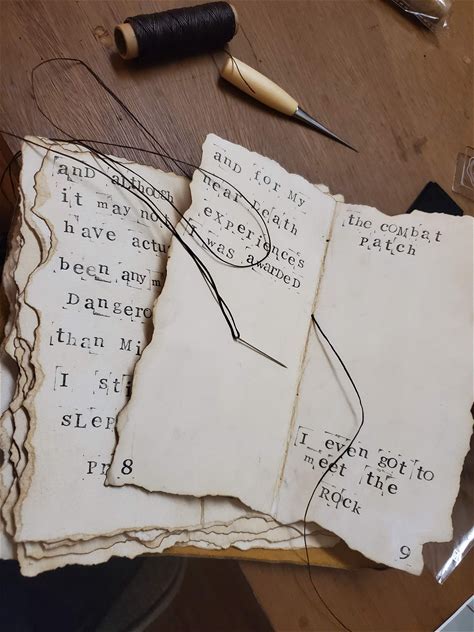 and although
it may not
have actu
been any m
Dangero
than Mi
I sti
sLEP
Pr
8
and for My
near Death
experiences
I was awarded
the coMbat
Patch
I even got to
meet the
Rock
9